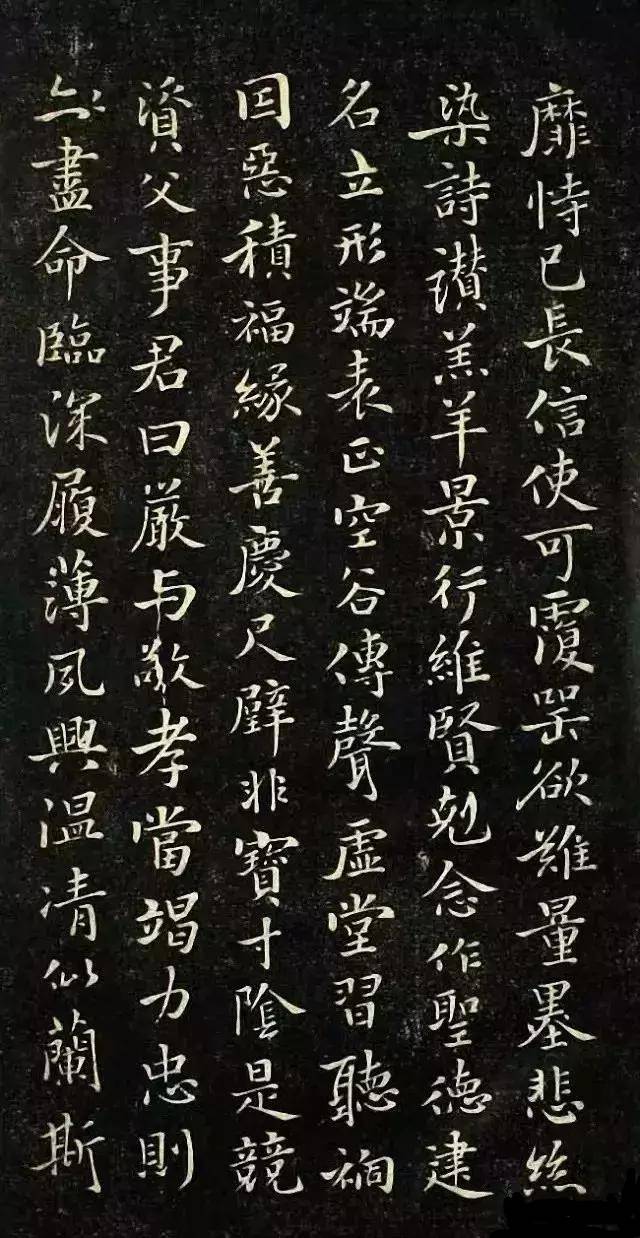 靡恃已長信使可覆器欲難量墨悲絲
染詩讃羔羊景行維賢剋念作聖德建
名立形端表正空谷傳聲虛堂習聽禍
因惡積福緣善慶尺璧非寶寸陰是競
資父事君曰嚴与敬孝當竭力忠則
盡命臨深履薄夙興温凊似蘭斯